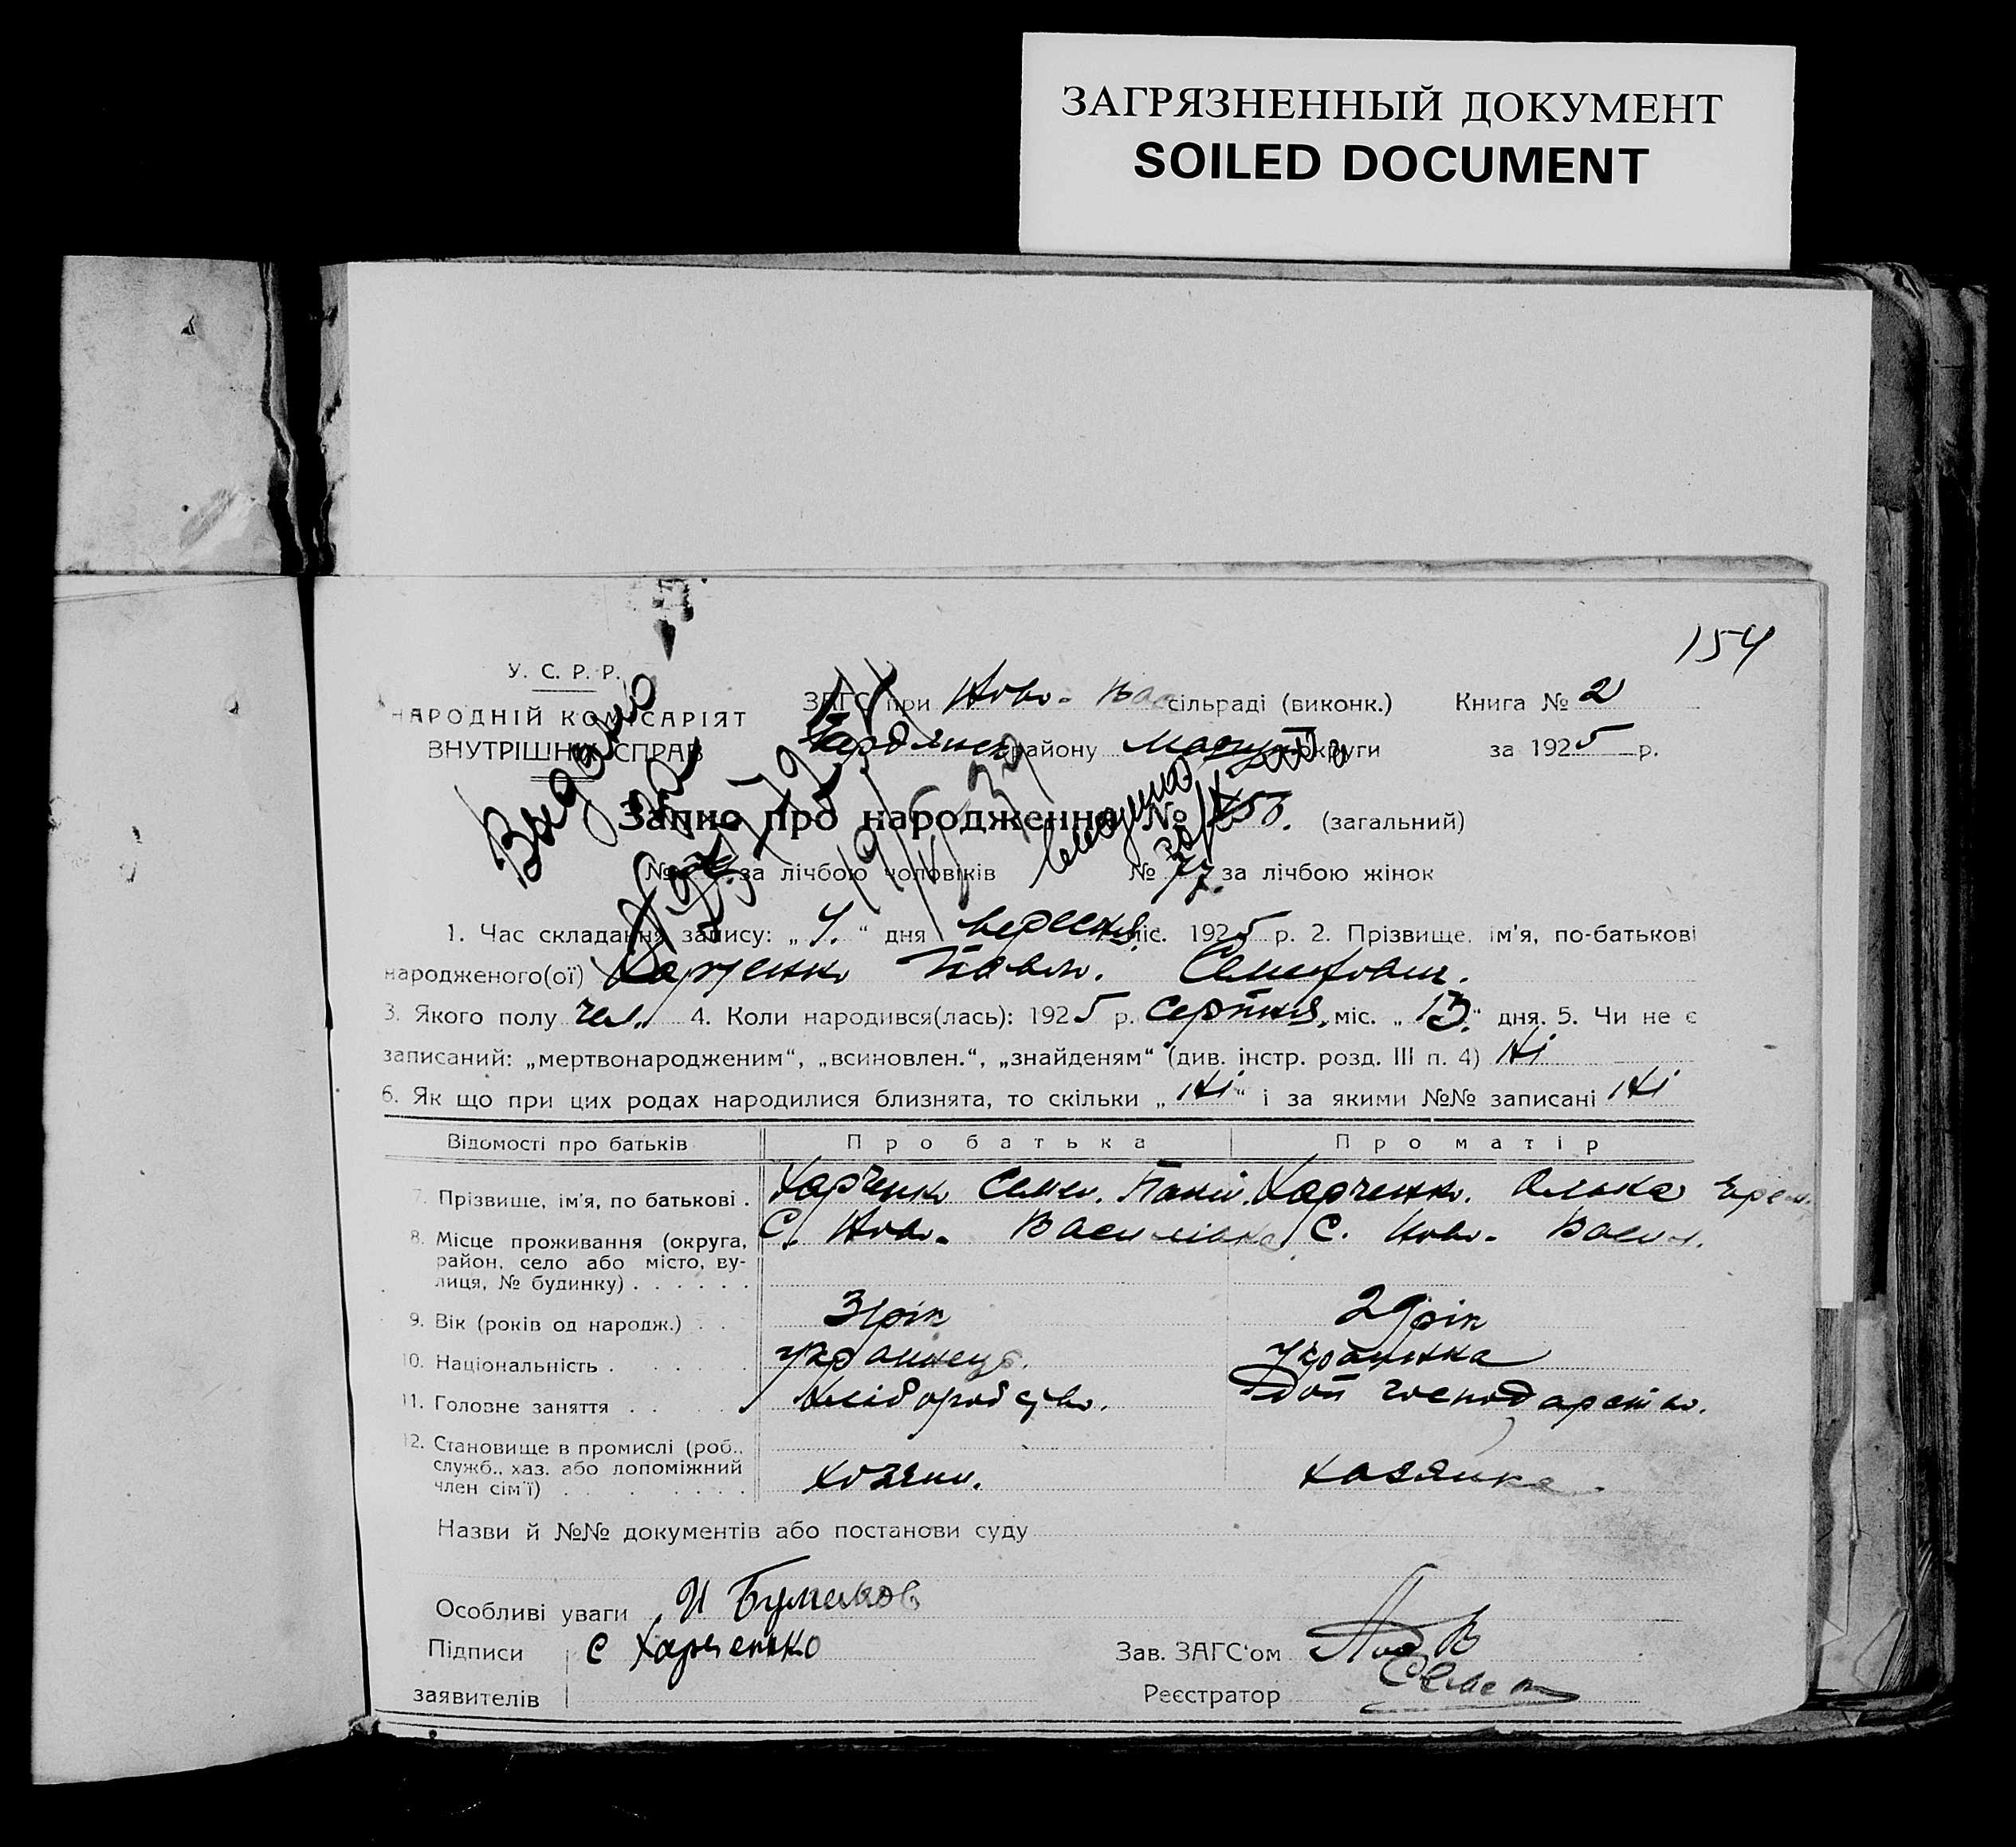 ЗАГРЯЗНЕННЫЙ ДОКУМЕНТ
SOILED DOCUMENT
154
У. С. Р. Р.
НАРОДНІЙ КОМІСАРІЯТ
ВНУТРІШНІХ СПРАВ
ЗАГС при Ново- Вас сільраді (виконк.) Книга № 2
Бердянск району округи за 1925 р.
Видано
Запис про народження № (загальний)
№ за лічбою чоловіків № 77. за лічбою жінок
1. Час складання запису: „ “ дня вересня міс. 1925 р. 2. Прізвище, ім'я, по-батькові
народженого(ої) Харченко Павло. Семенович.
3. Якого полу чол. 4. Коли народився(лась): 1925 р. серпня, міс. „ “ дня. 5. Чи не є
записаний: „мертвонародженим“, „всиновлен.“, „знайденям“ (див. інстр. розд. III п. 4) Ні
6. Як що при цих родах народилися близнята, то скільки „ Ні “ і за якими №№ записані Ні
Відомості про батьків Про батька Про матір
7. Прізвище, ім'я, по батькові . Харченко Семен. Харченко.
8. Місце проживання (округа, С. Ново- Василівка С. Ново- Васил.
район, село або місто, ву-
лиця, № будинку) . . . . . .
9. Вік (років од народж.) . . 31 рік 29 рік
10. Національність . . . . . украинець. украинка
11. Головне заняття . . . . хліборобство. Дом господарство.
12. Становище в промислі (роб.,
служб., хаз. або допоміжний хозяин. хазяйка.
член сім'ї) . . . . . . .
Назви й №№ документів або постанови суду
Особливі уваги И
Підписи С Харченко Зав. ЗАГС'ом
заявителів Реєстратор